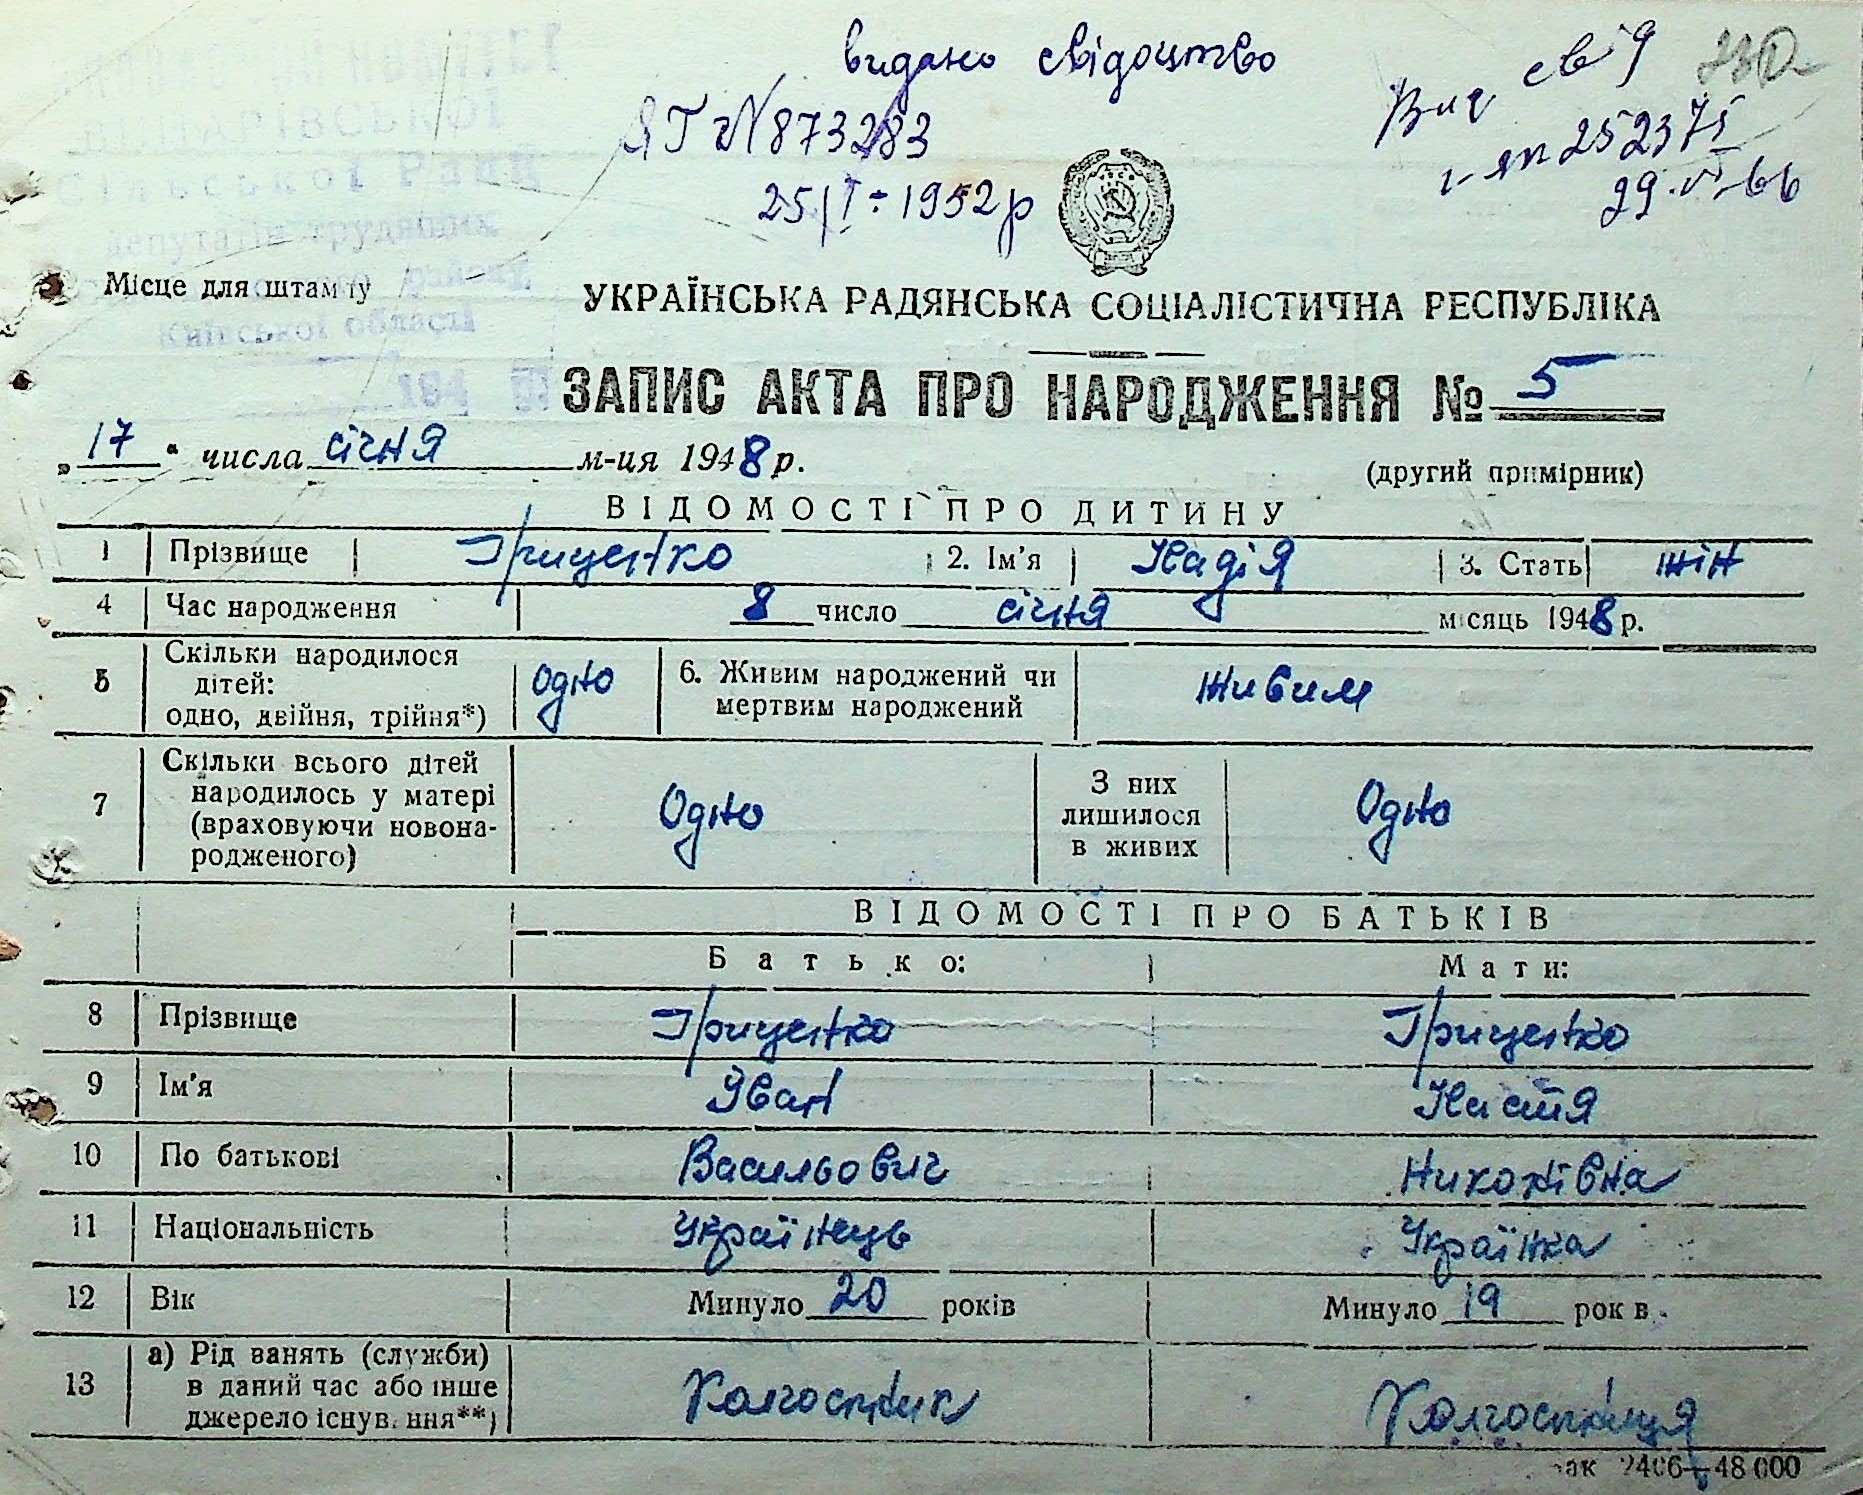 видано свідоцтво
ЯГ №873283
25/I-1952р
Вид свід
I-ЯП 252375
29.VI-66
Сільської Ради
депутатів трудящих
району
Київської області
194
Місце для штампу
УКРАЇНСЬКА РАДЯНСЬКА СОЦІАЛІСТИЧНА РЕСПУБЛІКА
ЗАПИС АКТА ПРО НАРОДЖЕННЯ № 5
„17“ числа січня м-ця 1948 р.
(другий примірник)
ВІДОМОСТІ ПРО ДИТИНУ
1 Прізвище Грищенко 2. Ім'я Надія 3. Стать жін
4 Час народження 8 число січня місяць 1948 р.
5 Скільки народилося
дітей:
одно, двійня, трійня*) Одно 6. Живим народжений чи
мертвим народжений Живим
7 Скільки всього дітей
народилось у матері
(враховуючи новона-
родженого) Одно З них
лишилося
в живих Одно
ВІДОМОСТІ ПРО БАТЬКІВ
Батько: Мати:
8 Прізвище Грищенко Грищенко
9 Ім'я Іван Настя
10 По батькові Васильович Никонівна
11 Національність Українець Українка
12 Вік Минуло 20 років Минуло 19 рок в.
13 а) Рід занять (служби)
в даний час або інше
джерело існув. ння**) Колгоспник Колгоспниця
зак 2406—48 000